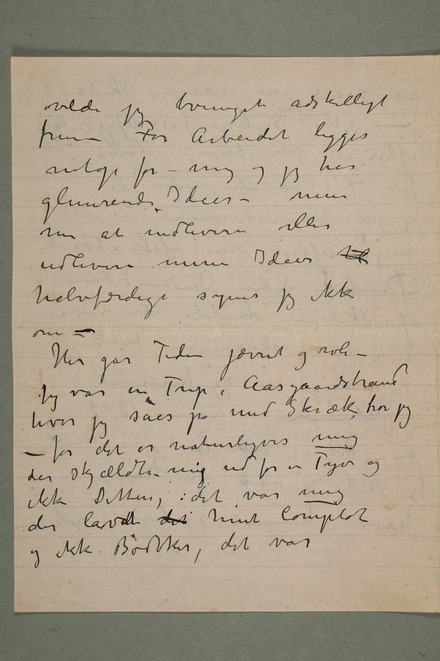 vilde jeg bvunget adskilligt
frem – For Arbeidet ligges
rolige for – mig og jeg har
glimrende Ideer – men
nu at indlevere eller
udlevere mine Ideer
halvfærdige synes jeg ikke
om –
Her går Tiden jævnt og rolig –
Jeg var en Trip i Aasgaardstrand
hvor jeg såes på med Skræk, tror jeg
– for det er naturligvis mig
der skjældte mig ud for en Tyv og
ikke Ditten, idet var mig
der lavede hint Complot
og ikke Bødtker, det var